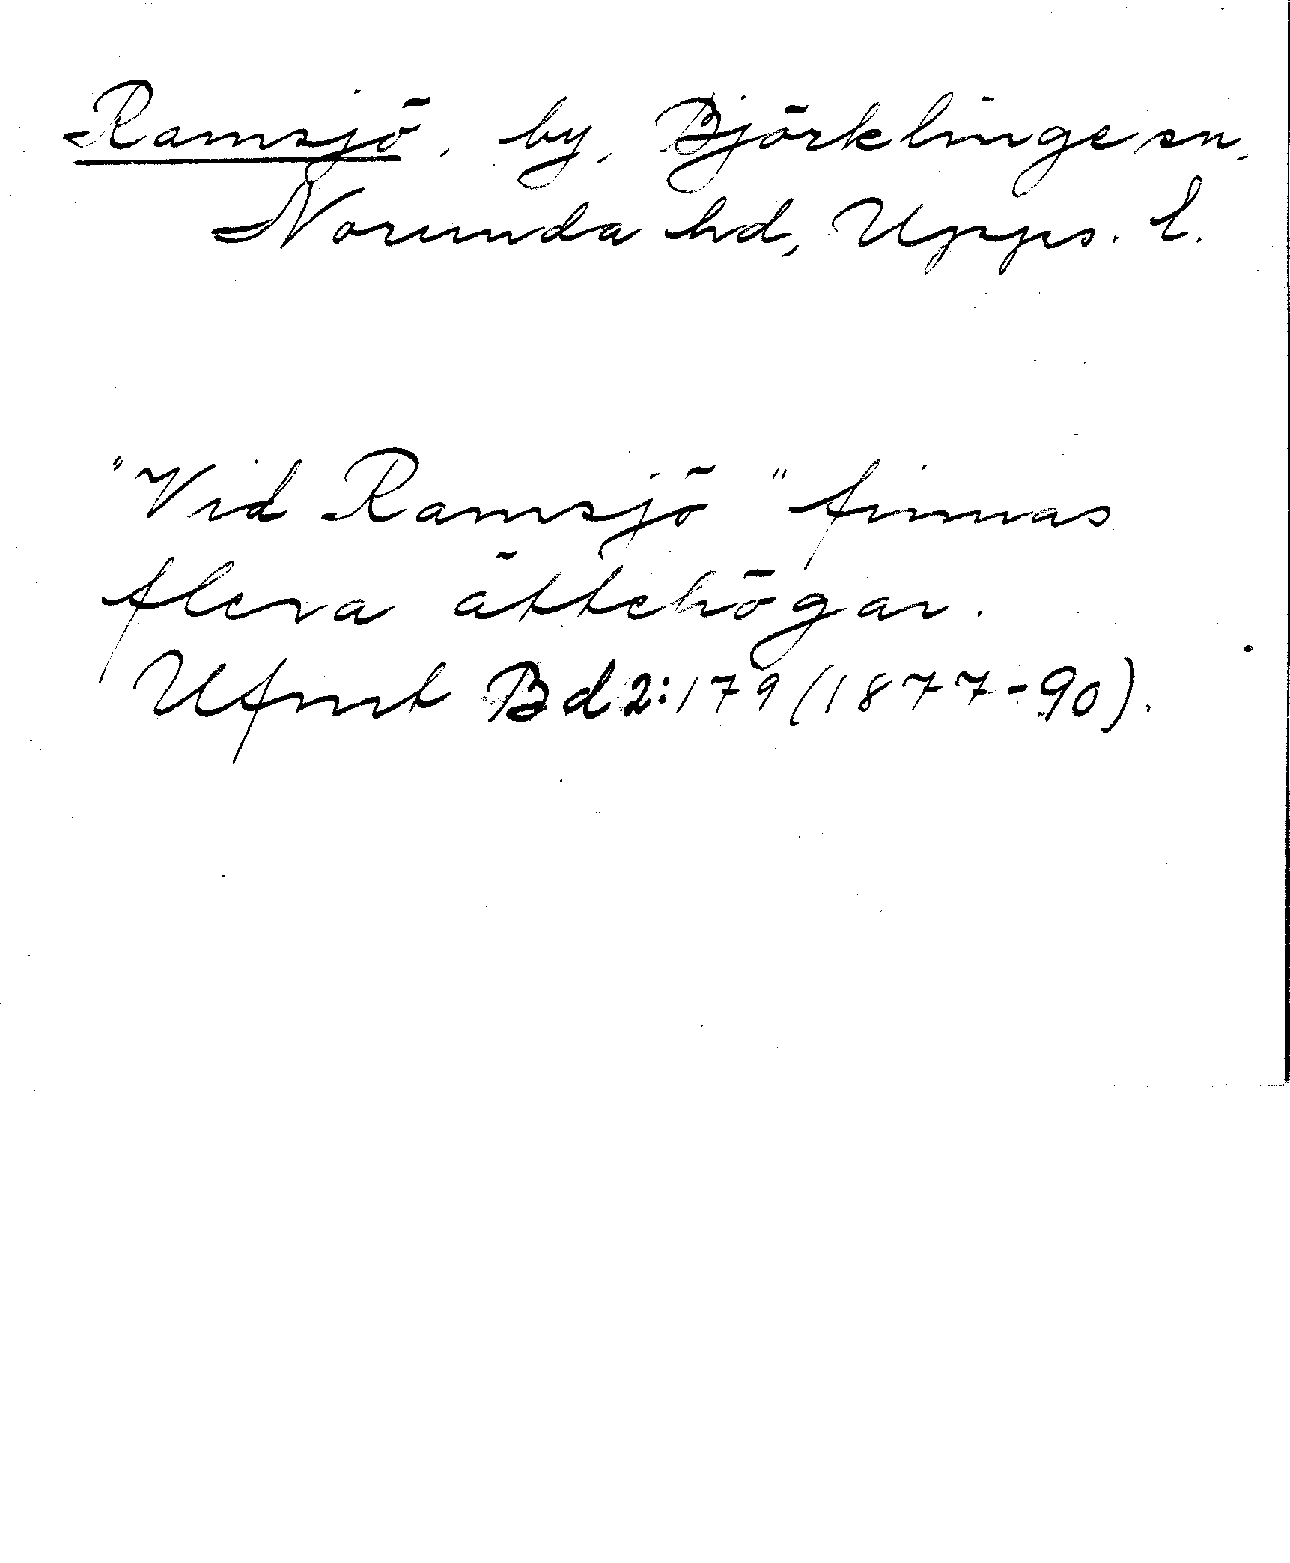 Ramsjö, by, Björklinge sn,
Norunda hd, Upps. l.
"Vid Ramsjö" finnas
flera ättehögar.
Ufmt Bd 2:179 (1877-90).